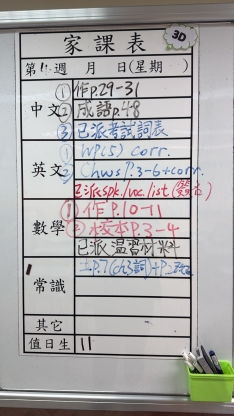 家課表
3D
第11週 月 日(星期 )
中文 ① 作p.29-31
② 成語p.48
③ 已派考試詞表
英文 ① WP(5) corr.
② Chws P.3-6+corr.
已派spk./voc.list
數學 ① 作P.10-11
② 校本P.3-4
已派温習材料
常識 P.7(ch3詞)+P.2
其它
值日生 11